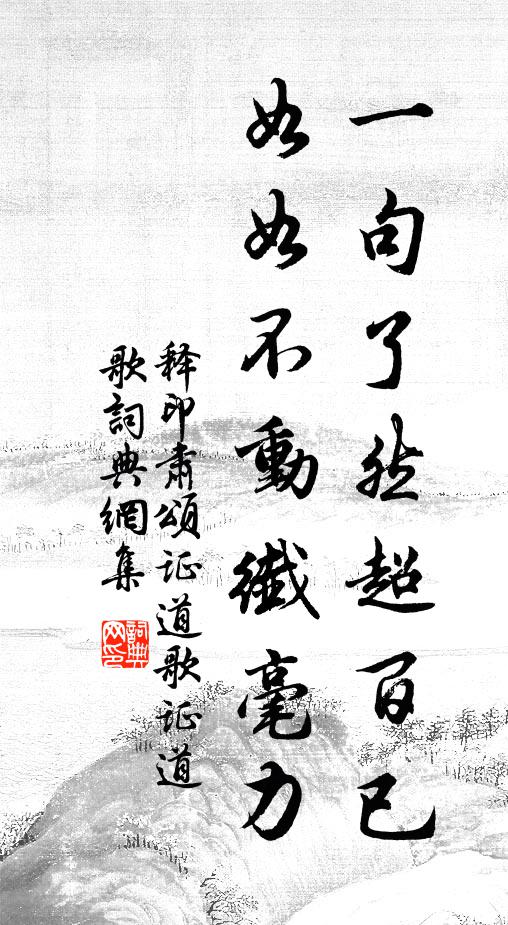 一句了然超百已
如如不動纖毫力
释印肅頌证道歌证道
歌詞典網集
詞典
网印